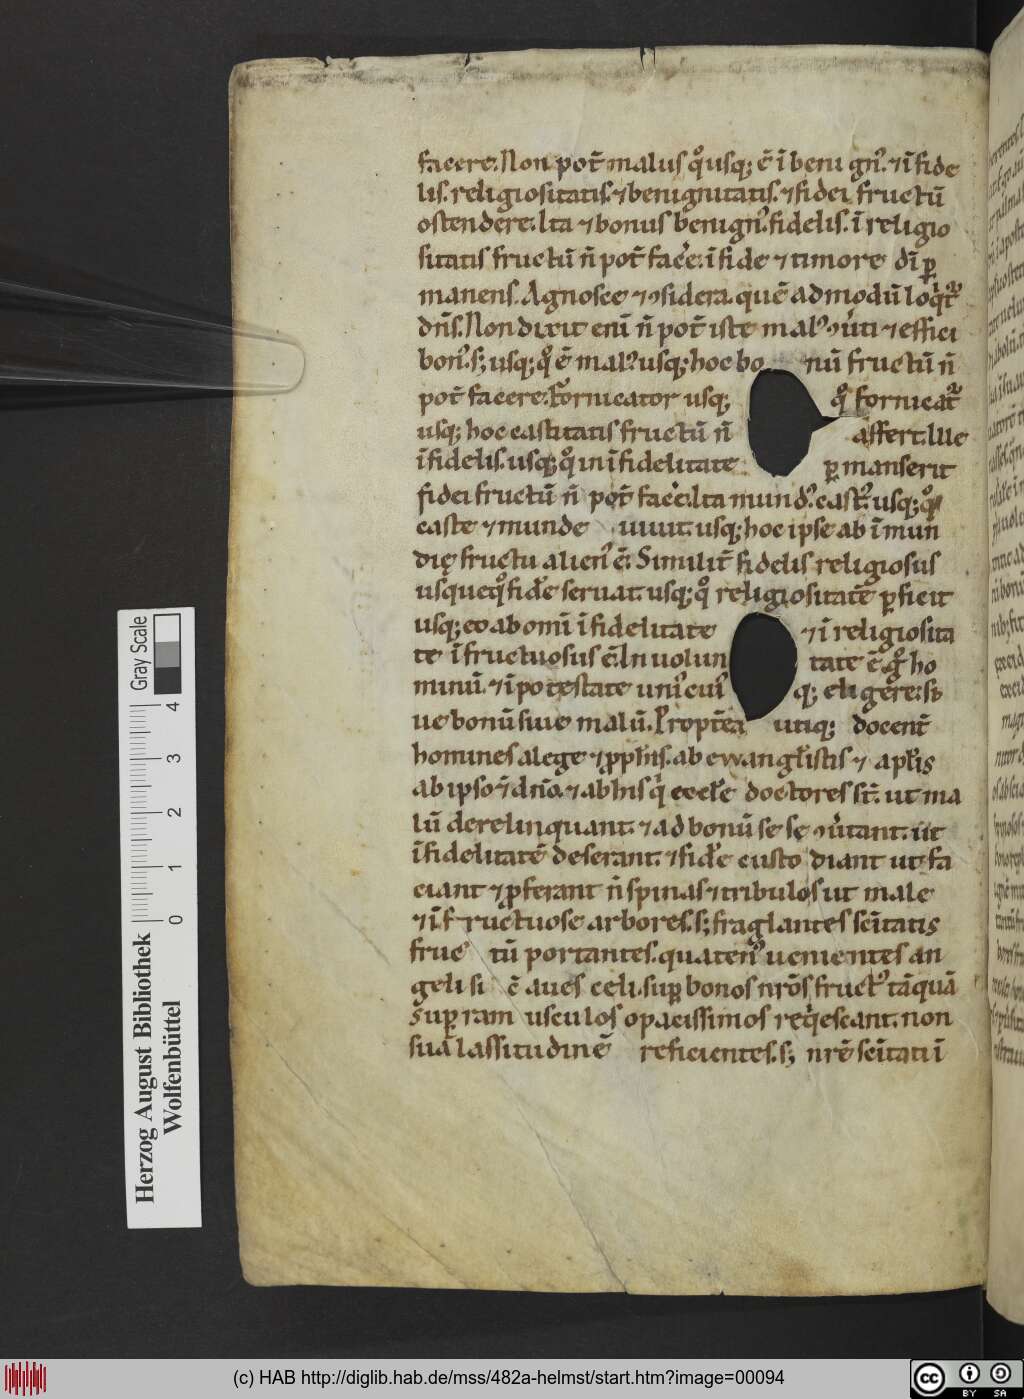 facere. Non pot̄ malus qͦusq; ē ī beni gn᷒. ⁊ īfide
lis. religiositatis. ⁊ benignitatis. ⁊ fidei fructū
ostendere. Ita ⁊ bonus benign᷒. fidelis. ī religio
sitatis fructū n̄ pot̄ facͤe. ī fide ⁊ timore dī ꝑ
manens. Agnosce ⁊ ꝯsidera. quē admodū loqͥt᷑
dn̄s. Non dixit enī n̄ pot̄ iste mal᷒ ꝯũti ⁊ effici
bon᷒. s; usq; qͦ ē mal᷒. usq; hoc bo nū fructū n̄
pot̄ facere. Fornicator usq; qͦ fornicat᷑
usq; hoc castitatis fructū n̄ affert. Ille
īfidelis. usq; qͦ in īfidelitate ꝑmanserit
fidei fructū n̄ pot̄ facͤe. Ita mund᷒. cast᷒. usq; qͦ
caste ⁊ munde uiuit. usq; hoc ipse ab īmun
dię fructu alien᷒ ē. Similit̄ fidelis religiosus
usquequͦ fidē seruat. usq; qͦ religiositatē ꝑficit
usq; eo ab omī īfidelitate ⁊ ī religiosita
te īfructuosus ē. In uolun tate ē. g̊ ho
minū. ⁊ ī potestate uni᷒ cui᷒ q; eligere. si
ue bonū siue malū. Proptēa utiq; docent̄
homines a lege ⁊ ꝓph̄is. ab ewangl̄istis ⁊ apl̄is
ab ipso ⁊̄ dn̄o. ⁊ ab his qͥ eccl̄e doctores st̄. ut ma
lū derelinquant. ⁊ ad bonū se sę ꝯũtant. ut
īfidelitatē deserant. ⁊ fidē custo diant ut fa
ciant ⁊ ꝓferant n̄ spinas ⁊ tribulos ut male
⁊ īfructuose arbores. s; fraglantes scītatis
fruc tū portantes. quaten᷒ uenientes an
geli si c̄ aues celi. suꝑ bonos nr̄os fruct᷒ tāquā
suꝑ ram usculos opacissimos reqͥescant. non
suā lassitudinē reficientes. s; nrē scītati ī
Gray Scale
0 1 2 3 4
Herzog August Bibliothek
Wolfenbüttel
(c) HAB http://diglib.hab.de/mss/482a-helmst/start.htm?image=00094
cc BY SA